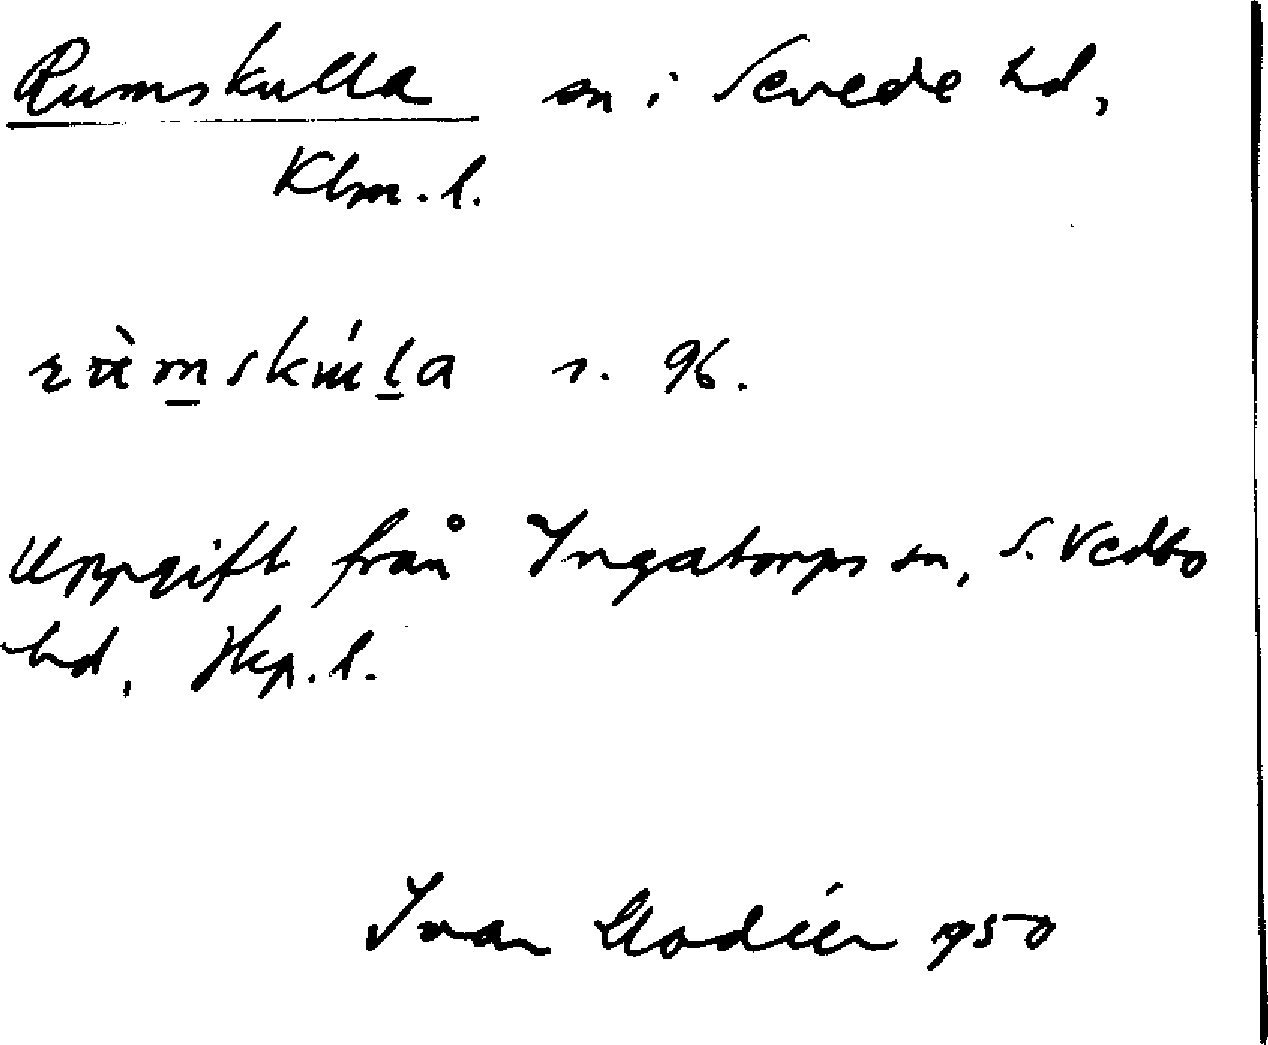 Rumskulla sn i Sevede hd,
Klm. l.
rùmskúla s. 96.
Uppgift från Ingatorps sn, S. Vedbo
hd, Jkp. l.
Ivar Modéer 1950